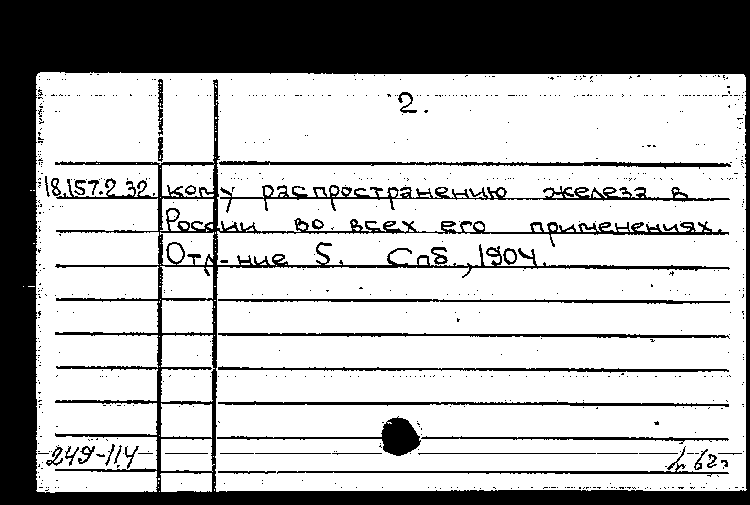 2.
18.157.2.32. кому распространению железа в
России во всех его применениях.
Отд-ние 5. Спб., 1904.
249-114